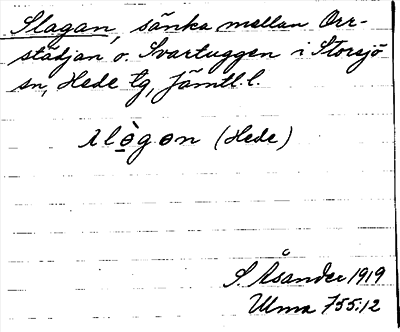 Slagan, sänka mellan Orr-
städjan o. Svartuggen i Storsjö
sn, Hede tg, Jämtl. l.
slògon (Hede)
S. Åsander 1919
Ulma 755:12